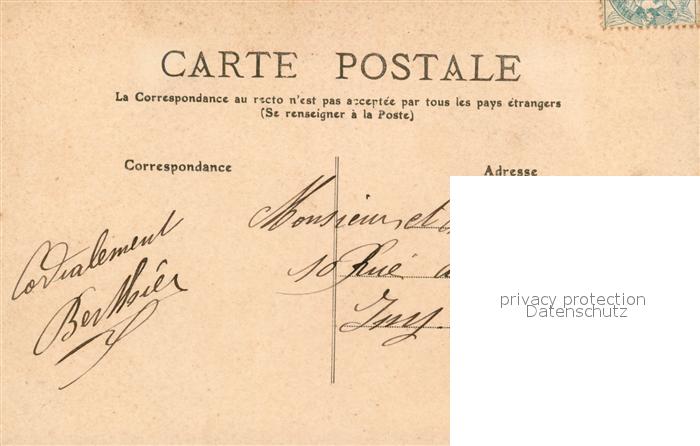 CARTE POSTALE
La Correspondance au recto n'est pas acceptée par tous les pays étrangers
(Se renseigner à la Poste)
Correspondance
Adresse
Cordialement
Berthier
Monsieur et
10 Rue
privacy protection
Datenschutz